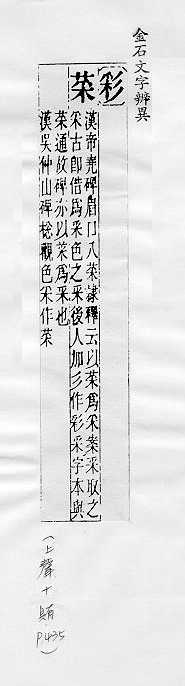 金石文字辨異
[彩]
菜
漢帝堯碑眉口八菜隸釋云以菜爲采案采取之
采古卽借爲采色之采後人加彡作彩采字本與
菜通故碑亦以菜爲采也
漢吳仲山碑棯觀色采作菜
(上聲十賄 P435)